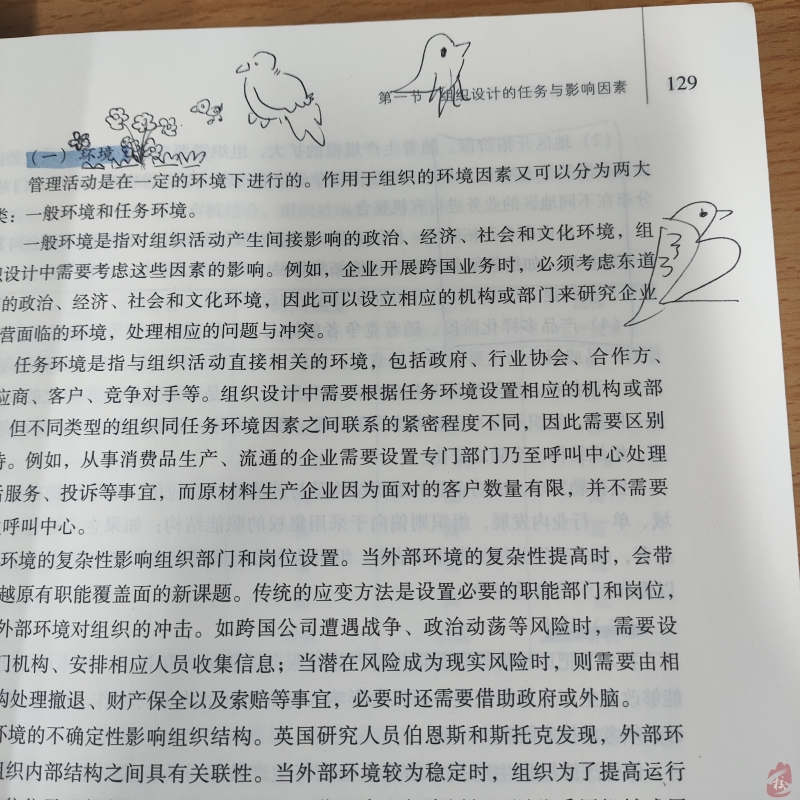 第一节 组织设计的任务与影响因素 129
(一) 环境
管理活动是在一定的环境下进行的。作用于组织的环境因素又可以分为两大
类：一般环境和任务环境。
一般环境是指对组织活动产生间接影响的政治、经济、社会和文化环境，组
设计中需要考虑这些因素的影响。例如，企业开展跨国业务时，必须考虑东道
的政治、经济、社会和文化环境，因此可以设立相应的机构或部门来研究企业
营面临的环境，处理相应的问题与冲突。
任务环境是指与组织活动直接相关的环境，包括政府、行业协会、合作方、
应商、客户、竞争对手等。组织设计中需要根据任务环境设置相应的机构或部
但不同类型的组织同任务环境因素之间联系的紧密程度不同，因此需要区别
待。例如，从事消费品生产、流通的企业需要设置专门部门乃至呼叫中心处理
后服务、投诉等事宜，而原材料生产企业因为面对的客户数量有限，并不需要
呼叫中心。
环境的复杂性影响组织部门和岗位设置。当外部环境的复杂性提高时，会带
越原有职能覆盖面的新课题。传统的应变方法是设置必要的职能部门和岗位，
外部环境对组织的冲击。如跨国公司遭遇战争、政治动荡等风险时，需要设
门机构、安排相应人员收集信息；当潜在风险成为现实风险时，则需要由相
构处理撤退、财产保全以及索赔等事宜，必要时还需要借助政府或外脑。
环境的不确定性影响组织结构。英国研究人员伯恩斯和斯托克发现，外部环
组织内部结构之间具有关联性。当外部环境较为稳定时，组织为了提高运行